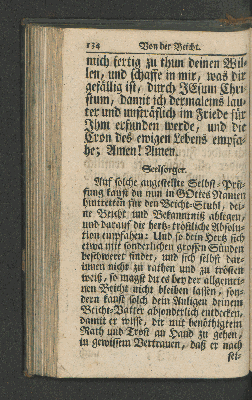 134 Von der Beicht.
mich fertig zu thun deinen Wil-
len, und schaffe in mir, was dir
gefällig ist, durch JEsum Chri-
stum, damit ich dermaleins lau-
ter und unsträflich im Friede für
Ihm erfunden werde, und die
Cron des ewigen Lebens empfa-
he; Amen! Amen.
Seelsorger.
Auf solche angestellte Selbst-Prü-
fung kanst du nun in GOttes Namen
hintretten für den Beicht-Stuhl, dei-
ne Beicht und Bekanntniß ablegen,
und darauf die hertz-tröstliche Absolu-
tion empfahen: Und so dein Hertz sich
etwa mit sonderlichen grossen Sünden
beschweret findet, und sich selbst dar-
innen nicht zu rathen und zu trösten
weiß, so magst du es bey der allgemei-
nen Beicht nicht bleiben lassen, son-
dern kanst solch dein Anligen deinem
Beicht-Vatter absonderlich entdecken,
damit er wisse, dir mit benöthigtem
Rath und Trost an Hand zu gehen,
in gewissem Vertrauen, daß er nach
sei-